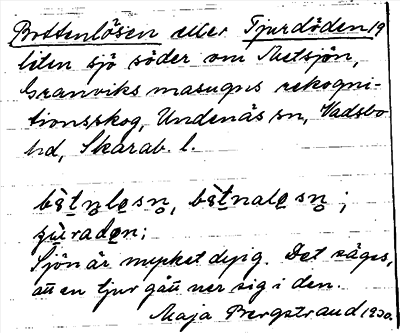 Bottenlösen eller Tjurdöden 19
liten sjö söder om Metsjön,
Granviks masugns rekogni-
tionsskog, Undenäs sn, Vadsbo
hd, Skarab. l.
Sjön är mycket dyig. Det säges,
att en tjur gått ner sig i den.
Maja Bergstrand 1930.